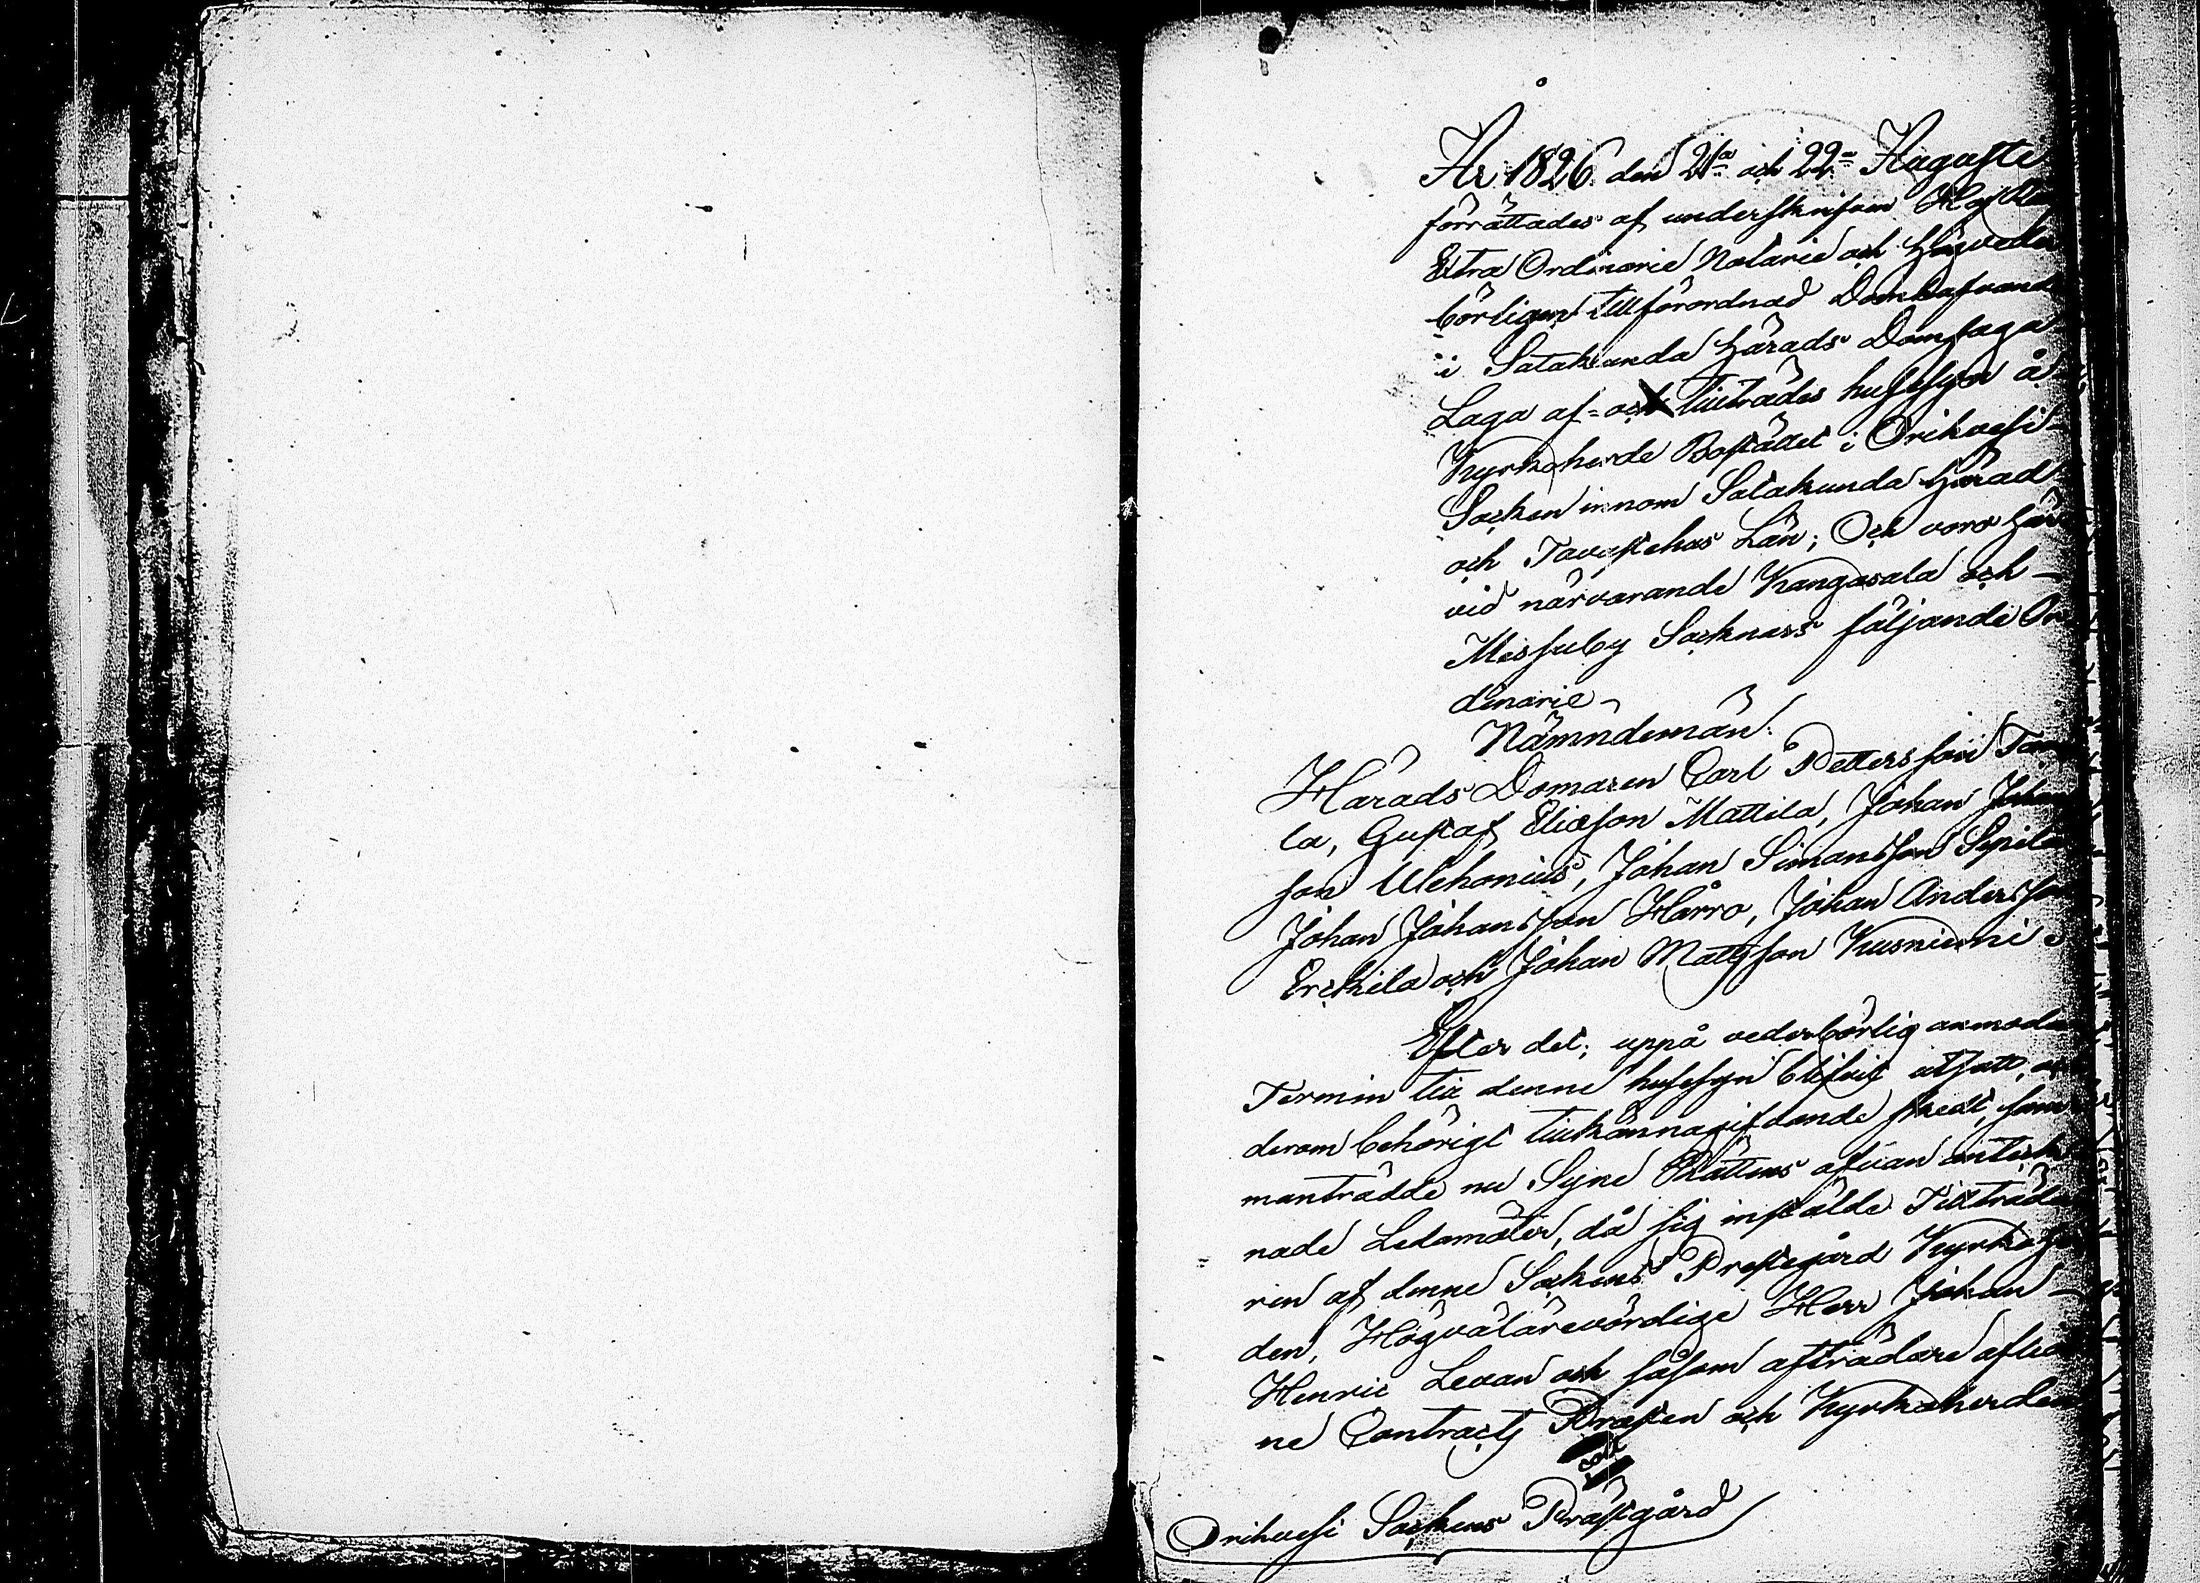 År 1826 den 21a och 22a Augusti
förrättades af underskrifven Hof Rätts
Extra Ordinarie Notarie och Högveder
börligen tillförordnad Domhafvande
i Satakunda Härads Domsaga
Laga af- och tillträdes husesyn å
Kyrkoherde Bostället i Orihvesi
Socken innom Satakunda Härad
och Tavastehus Län; Och voro här
vid närvarande Kangasala och
Messuby Socknars följande Or
dinarie
Nämndemän:
Härads Domaren Carl Pettersson
la, Gustaf Eliæson Mattila, Johan Johans
son Uchonius, Johan Simonsson Sipila
Johan Johansson Harro, Johan Andersson
Erckila och Johan Mattsson Kusniemi
Efter det, uppå vederbörlig anmodan
Termin till denne husesyn blifvit utsatt, och
derom behörigt tillkännagifvande skedt, sam
manträdde nu Syne Rättens ofvan anteck
nade Ledamöter, då sig instälde Tillträda
ren af denne Sockens Prestegård Kyrkoher
den, Högvälärevördige Herr Johan
Henric Levan och såsom afträdare aflid
ne Contracts Prosten och Kyrkoherden
Orihvesi Sockens Prästgård